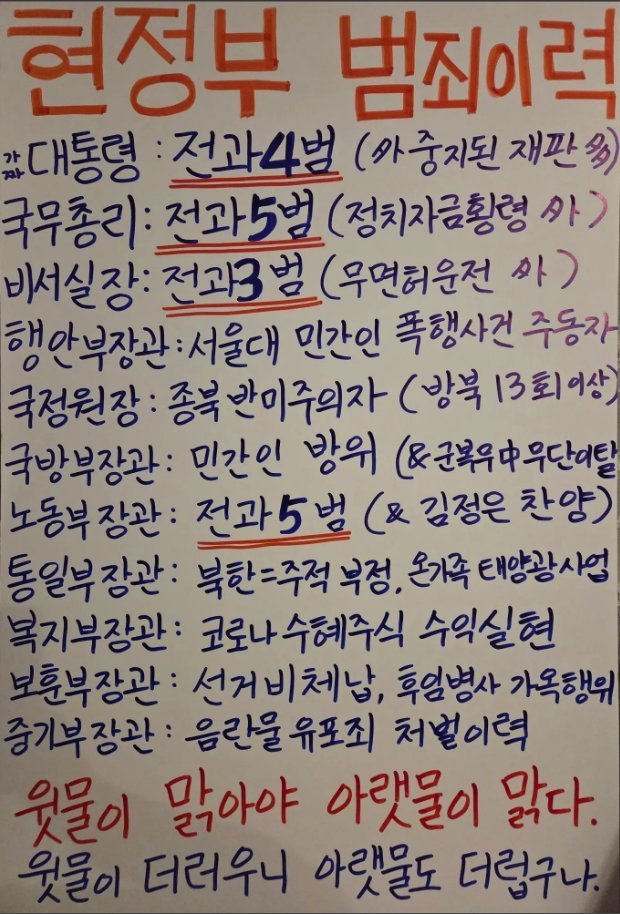 현정부 범죄이력
가짜 대통령 : 전과4범 (外 중지된 재판 多)
국무총리 : 전과5범 (정치자금횡령 外)
비서실장 : 전과3범 (무면허운전 外)
행안부장관 : 서울대 민간인 폭행사건 주동자
국정원장 : 종북반미주의자 (방북 13회이상)
국방부장관 : 민간인 방위 (&군복무中무단이탈
노동부장관 : 전과5범 (& 김정은 찬양)
통일부장관 : 북한=주적 부정, 온가족 태양광사업
복지부장관 : 코로나 수혜주식 수익실현
보훈부장관 : 선거비체납, 후임병사 가옥행위
중기부장관 : 음란물유포죄 처벌이력
윗물이 맑아야 아랫물이 맑다.
윗물이 더러우니 아랫물도 더럽구나.